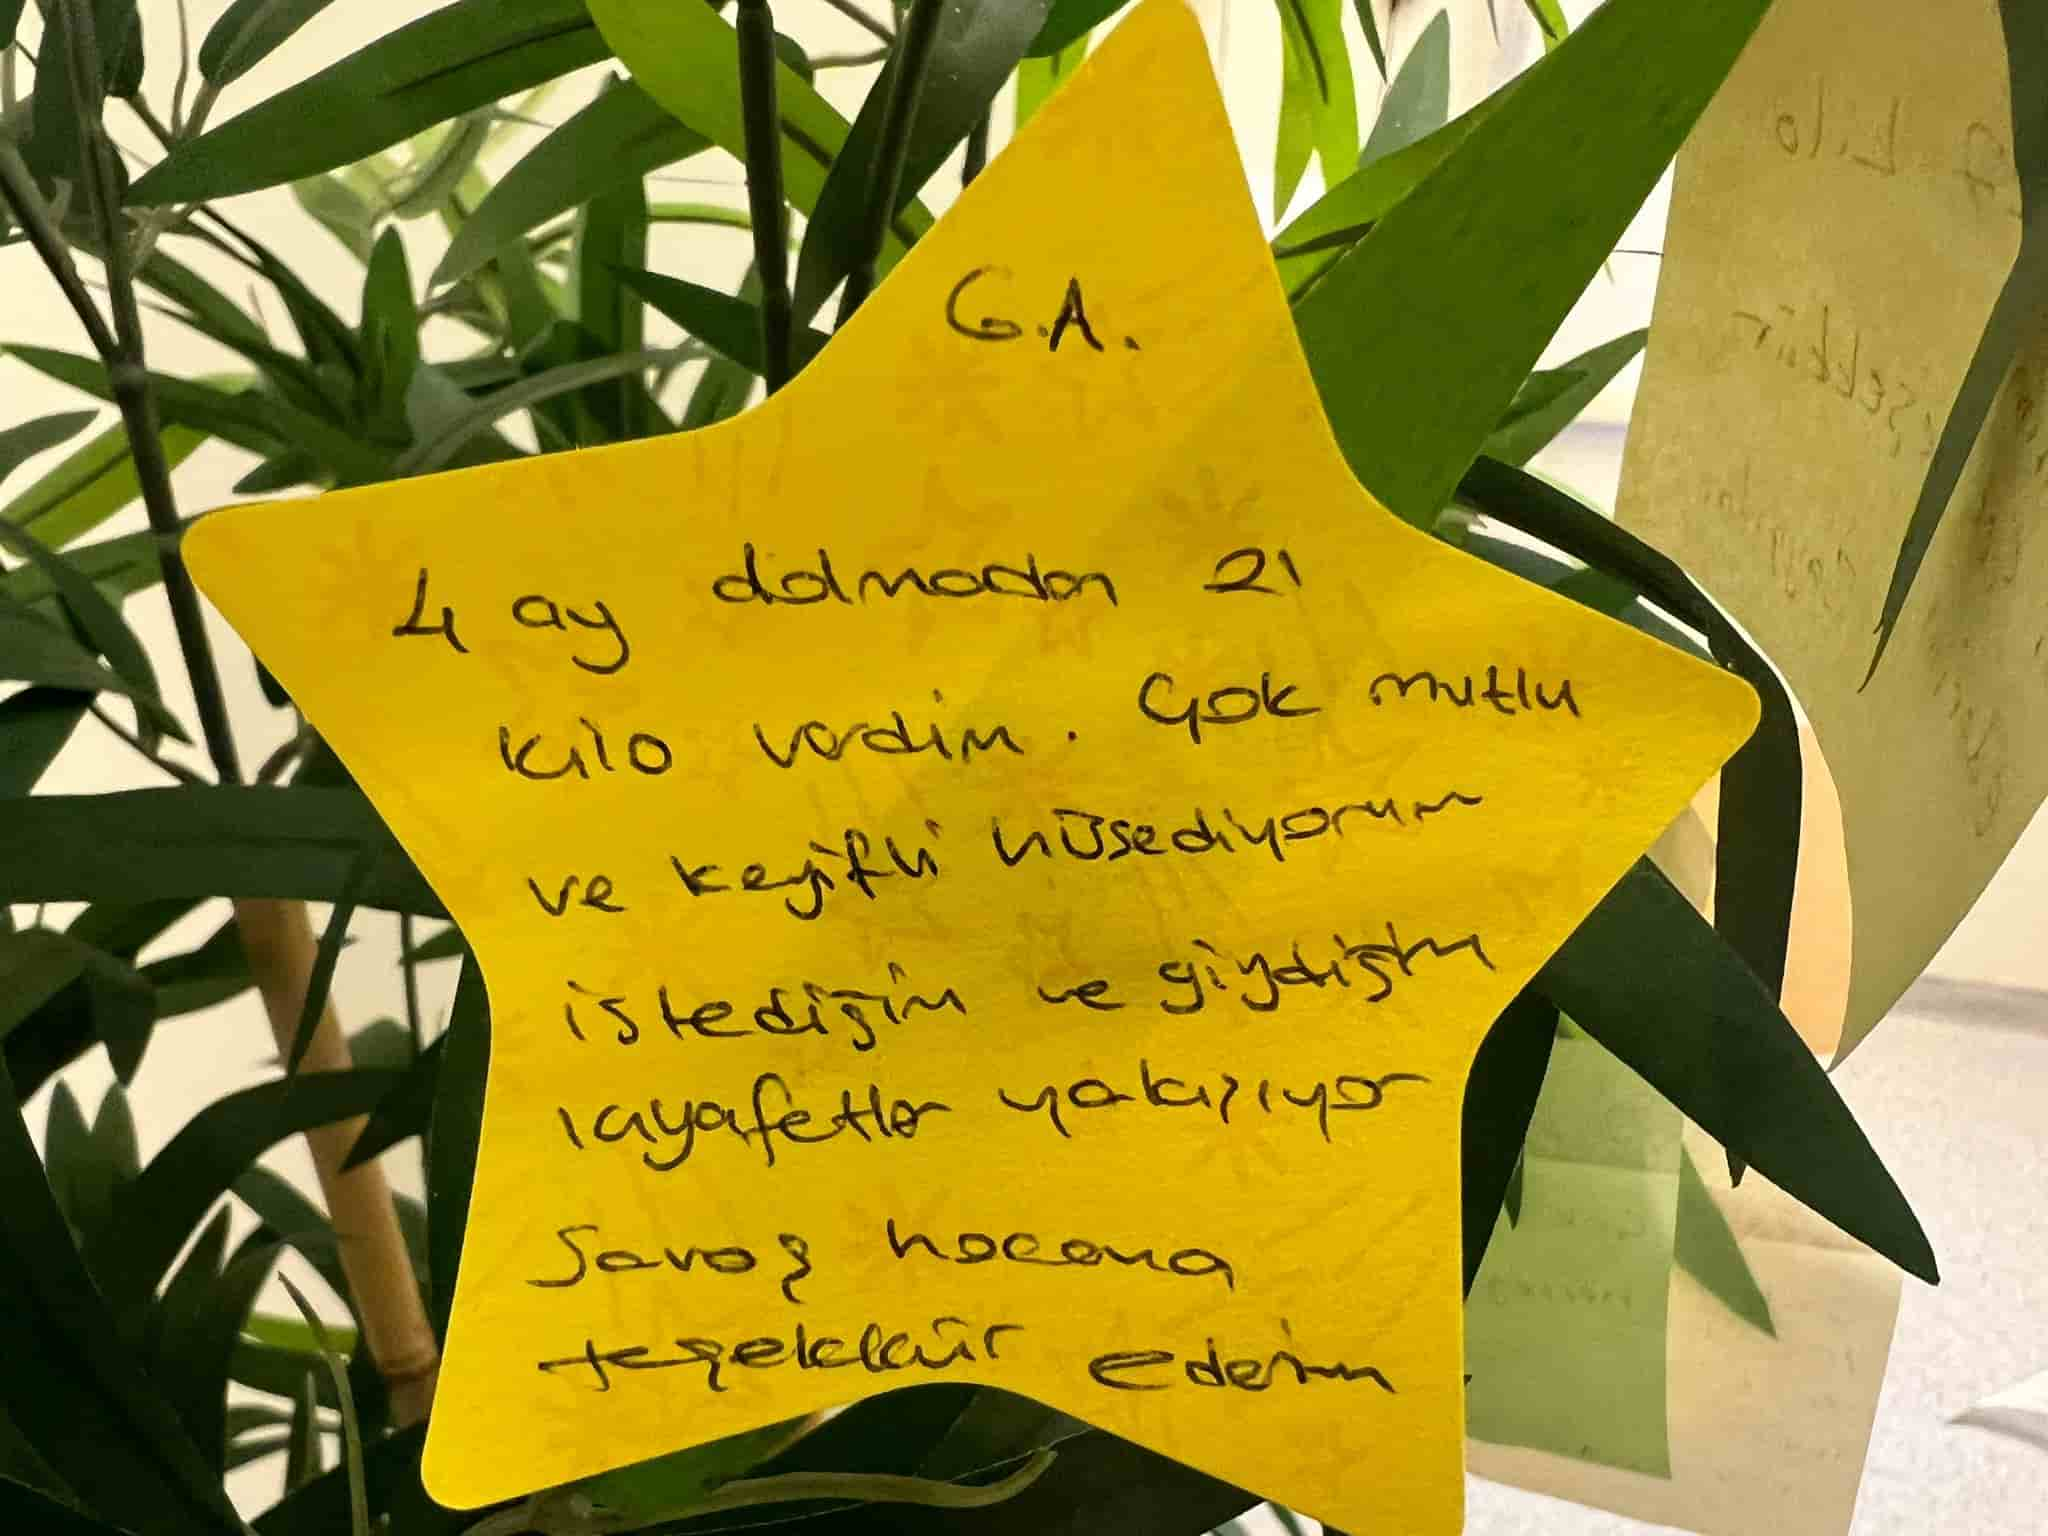 G.A.
4 ay dolmadan 21
kilo verdim. Çok mutlu
ve keyifli hissediyorum
istediğim ve giydiğim
kıyafetler yakışıyor
Savaş hocama
teşekkür ederim
kilo
teşekkür